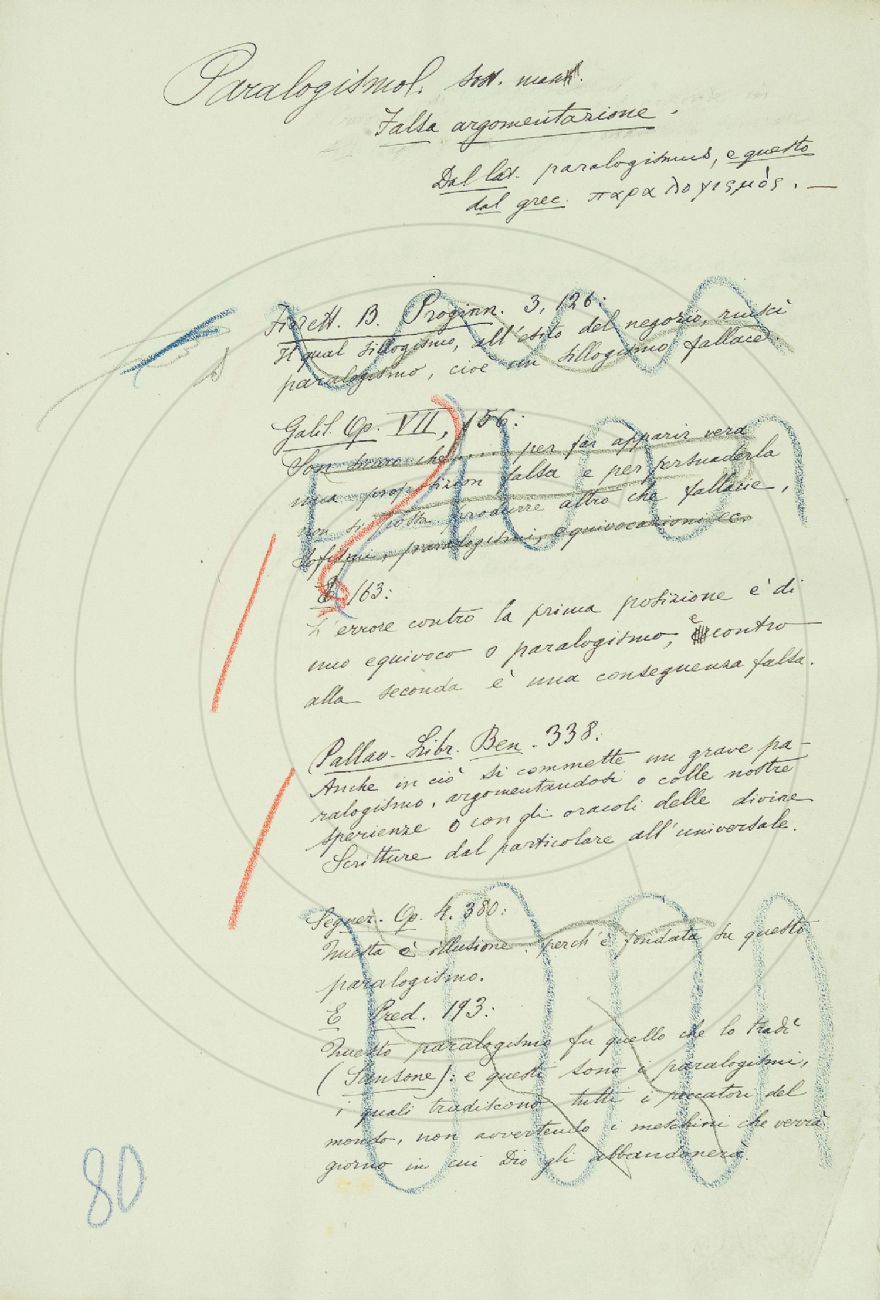 Paralogismo. Sost. masc.
Falsa argomentazione.
Dal lat. paralogismus, e questo
dal grec. παραλογισμός. —
Fiorett. B. Proginn. 3, 126:
Il qual sillogismo, all'esito del negozio, riuscì
paralogismo, cioè un sillogismo fallace.
Galil. Op. VII, 156:
Son sicuro che ..... per far apparir vera
una proposizion falsa e per persuaderla
non si possa produrre altro che fallacie,
sofismi, paralogismi, equivocazioni ec.
E 163:
L'errore contro la prima posizione è di
uno equivoco o paralogismo, e contro
alla seconda è una conseguenza falsa.
Pallav. Libr. Ben. 338:
Anche in ciò si commette un grave pa-
ralogismo, argomentandosi o colle nostre
sperienze o con gli oracoli delle divine
Scritture dal particolare all'universale.
Segner. Op. 4. 380:
Questa è illusione, perch'è fondata su questo
paralogismo.
E Pred. 193:
Questo paralogismo fu quello che lo tradì
(Sansone): e questi sono i paralogismi,
i quali tradiscono tutti i peccatori del
mondo, non avvertendo i meschini che verrà
giorno in cui Dio gli abbandonerà.
80